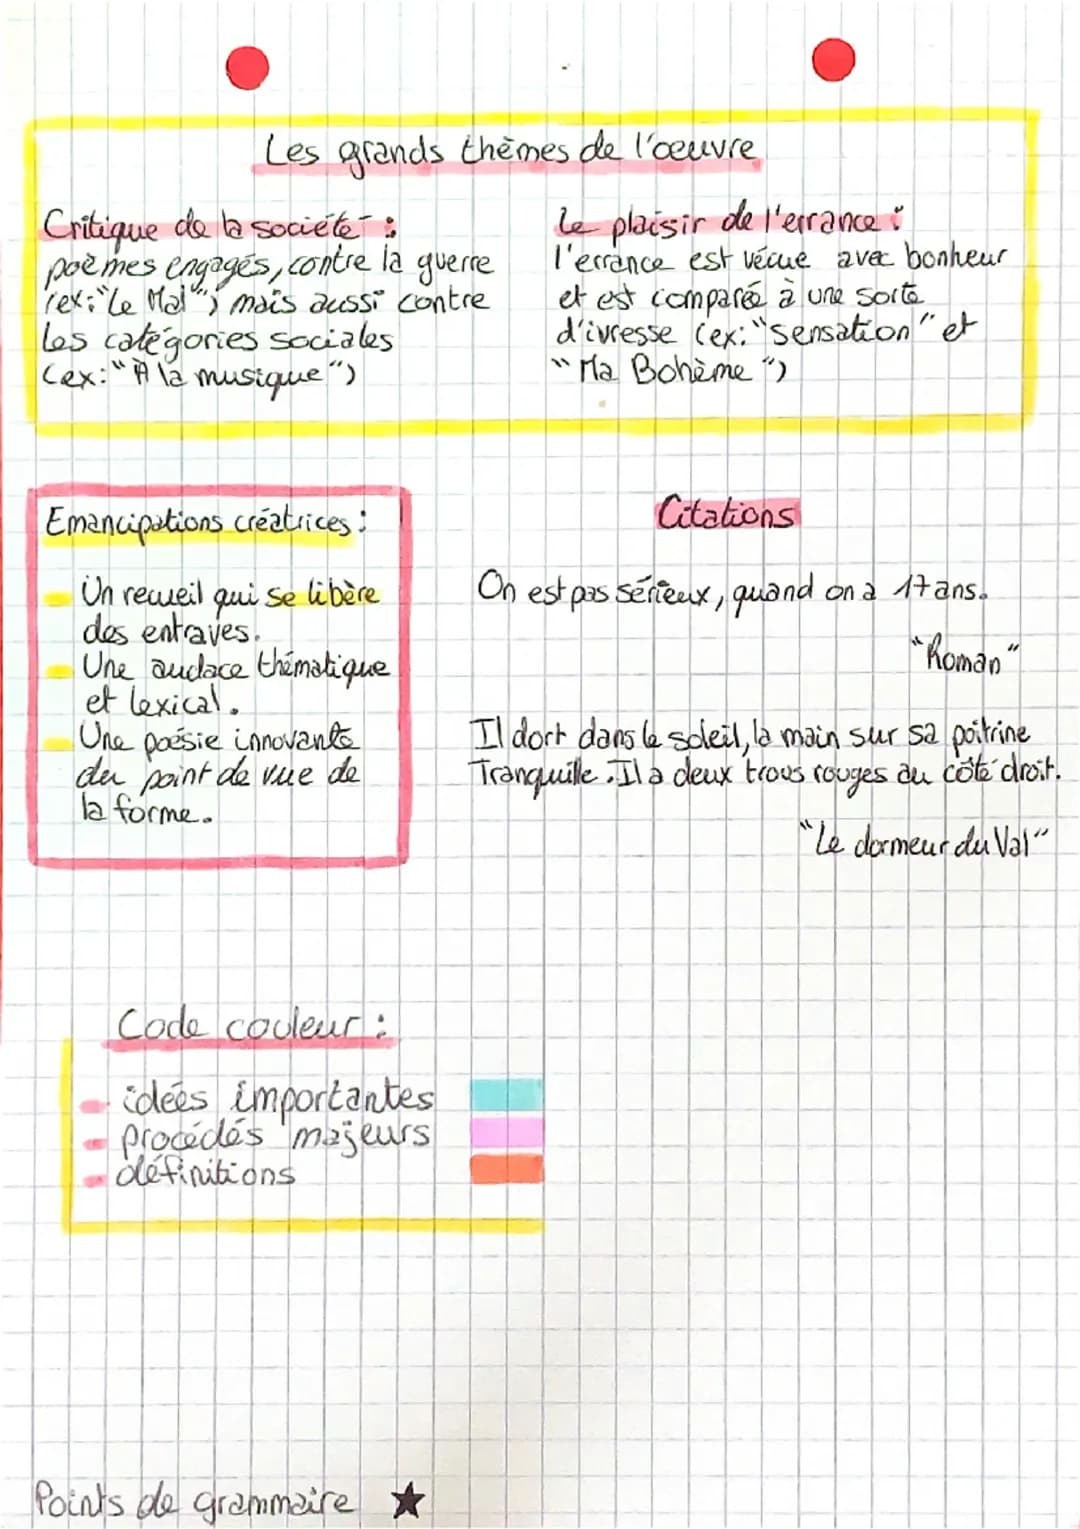 Les grands thèmes de l'œuvre
Critique de la société :
poèmes engagés, contre la guerre
(ex: "Le Mal") mais aussi contre
les catégories sociales
(ex: "A la musique")
le plaisir de l'errance :
l'errance est vécue avec bonheur
et est comparée à une sorte
d'ivresse (ex: "Sensation" et
"Ma Bohème")
Emancipations créatrices :
Un recueil qui se libère
des entraves.
Une audace thématique
et lexical.
Une poésie innovante
du point de vue de
la forme.
Citations
On est pas sérieux, quand on a 17 ans.
"Roman"
Il dort dans le soleil, la main sur sa poitrine
Tranquille. Il a deux trous rouges au côté droit.
"Le dormeur du Val"
Code couleur :
- idées importantes
- procédés majeurs
- définitions
Points de grammaire ★